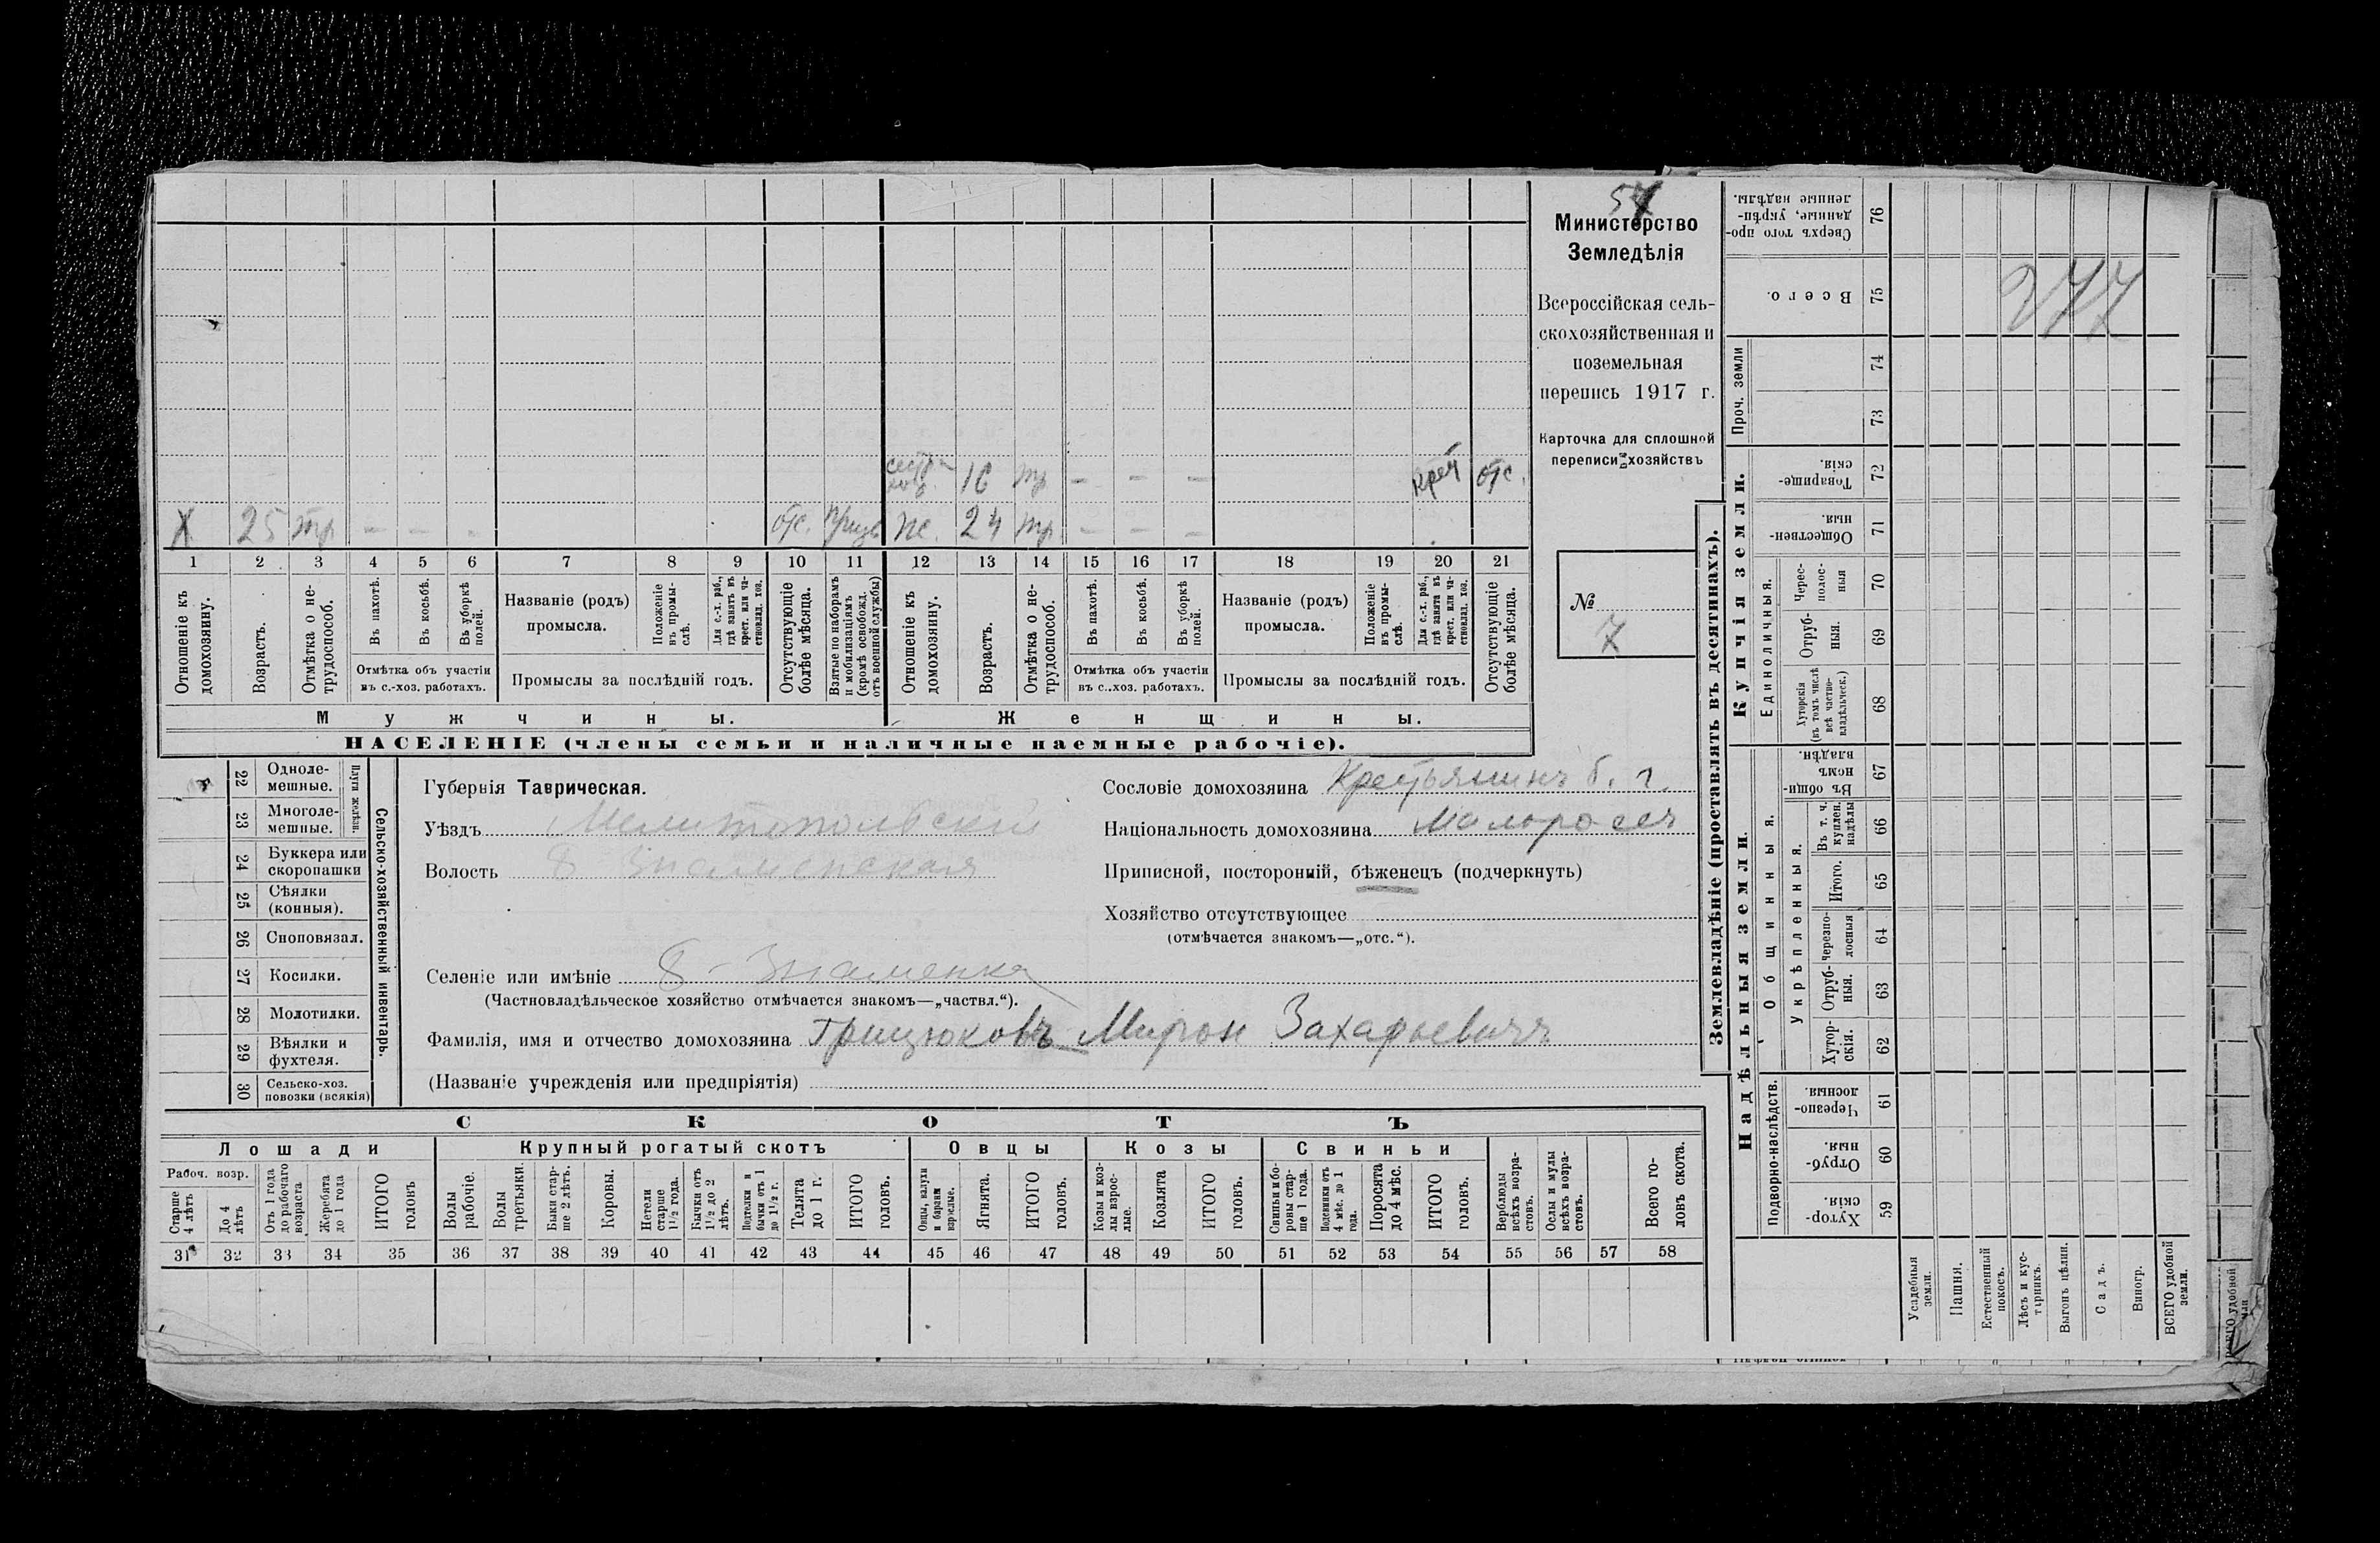 57
Министерство
Земледѣлія
Всероссійская сель-
скохозяйственная и
поземельная
перепись 1917 г.
Карточка для сплошной
переписи хозяйствъ
№
7
277
16 отс.
Х 25 отс. 24
1 2 3 4 5 6 7 8 9 10 11 12 13 14 15 16 17 18 19 20 21
Отношеніе къ домохозяину.
Возрастъ.
Отмѣтка о не-трудоспособ.
Въ пахотѣ.
Въ косьбѣ.
Въ уборкѣ полей.
Отмѣтка объ участіи
въ с.-хоз. работахъ.
Названіе (родъ)
промысла.
Положеніе въ промы-слѣ.
Для с.-х. раб., гдѣ занятъ въ крест. или ча-стновлад. хоз.
Промыслы за послѣдній годъ.
Отсутствующіе болѣе мѣсяца.
Взятые по наборамъ и мобилизаціямъ (кромѣ освобожд. отъ военной службы)
Отношеніе къ домохозяину.
Возрастъ.
Отмѣтка о не-трудоспособ.
Въ пахотѣ.
Въ косьбѣ.
Въ уборкѣ полей.
Отмѣтка объ участіи
въ с.-хоз. работахъ.
Названіе (родъ)
промысла.
Положеніе въ промы-слѣ.
Для с.-х. раб., гдѣ занята въ крест. или ча-стновлад. хоз.
Промыслы за послѣдній годъ.
Отсутствующіе болѣе мѣсяца.
Мужчины. Женщины.
НАСЕЛЕНІЕ (члены семьи и наличные наемные рабочіе).
Сельско-хозяйственный инвентарь.
Плуги желѣзн.
22 Одноле-мешные.
23 Многоле-мешные.
24 Буккера или скоропашки
25 Сѣялки (конныя).
26 Сноповязал.
27 Косилки.
28 Молотилки.
29 Вѣялки и фухтеля.
30 Сельско-хоз. повозки (всякія)
Губернія Таврическая.
Уѣздъ Мелитопольскій
Волость Б Знаменская
Селеніе или имѣніе Б-Знаменка
(Частновладѣльческое хозяйство отмѣчается знакомъ—„частвл.“).
Фамилія, имя и отчество домохозяина Грицюковъ Мирон Захарьевичъ
(Названіе учрежденія или предпріятія)
Сословіе домохозяина Крестьянинъ
Національность домохозяина Малороссъ
Приписной, посторонній, бѣженецъ (подчеркнуть)
Хозяйство отсутствующее
(отмѣчается знакомъ—„отс.“).
СКОТЪ
Лошади Крупный рогатый скотъ Овцы Козы Свиньи
Рабоч. возр.
Старше 4 лѣтъ
До 4 лѣтъ
Отъ 1 года до рабочаго возраста
Жеребята до 1 года
ИТОГО головъ
Волы рабочіе.
Волы третьяки.
Быки стар-ше 2 лѣтъ.
Коровы.
Нетели старше 1 1/2 года.
Бычки отъ 1 1/2 до 2 лѣтъ.
Подтелки и бычки отъ 1 до 1 1/2 г.
Телята до 1 г.
ИТОГО головъ.
Овцы, валухи и бараны взрослые.
Ягнята.
ИТОГО головъ.
Козы и коз-лы взрос-лые.
Козлята
ИТОГО головъ.
Свиньи и бо-ровы стар-ше 1 года.
Подсвинки отъ 4 мѣс. до 1 года.
Поросята до 4 мѣс.
ИТОГО головъ.
Верблюды всѣхъ возра-стовъ.
Ослы и мулы всѣхъ возра-стовъ.
Всего го-ловъ скота.
31 32 33 34 35 36 37 38 39 40 41 42 43 44 45 46 47 48 49 50 51 52 53 54 55 56 57 58
Землевладѣніе (проставлять въ десятинахъ).
Надѣльныя земли.
Купчія земли.
Проч. земли
Подворно-наслѣдств.
Общинныя.
Укрѣпленныя.
Единоличныя.
Сверхъ того про-данные, укрѣп-ленные надѣлы. 76
Всего. 75
74
73
Товарище-скія. 72
Обществен-ныя. 71
Черес-полос-ныя 70
Отруб-ныя. 69
Хуторскія (въ томъ числѣ всѣ частно-владѣльческ.) 68
Въ общи-номъ владѣн. 67
Въ т. ч. куплен. надѣлы 66
Итого. 65
Черезпо-лосныя 64
Отруб-ныя. 63
Хутор-скія. 62
Черезпо-лосныя. 61
Отруб-ныя. 60
Хутор-скія. 59
Усадебныя земли.
Пашня.
Естественный покосъ.
Лѣсъ и кус-тарникъ.
Выгонъ цѣлин.
Садъ.
Виногр.
ВСЕГО удобной земли.